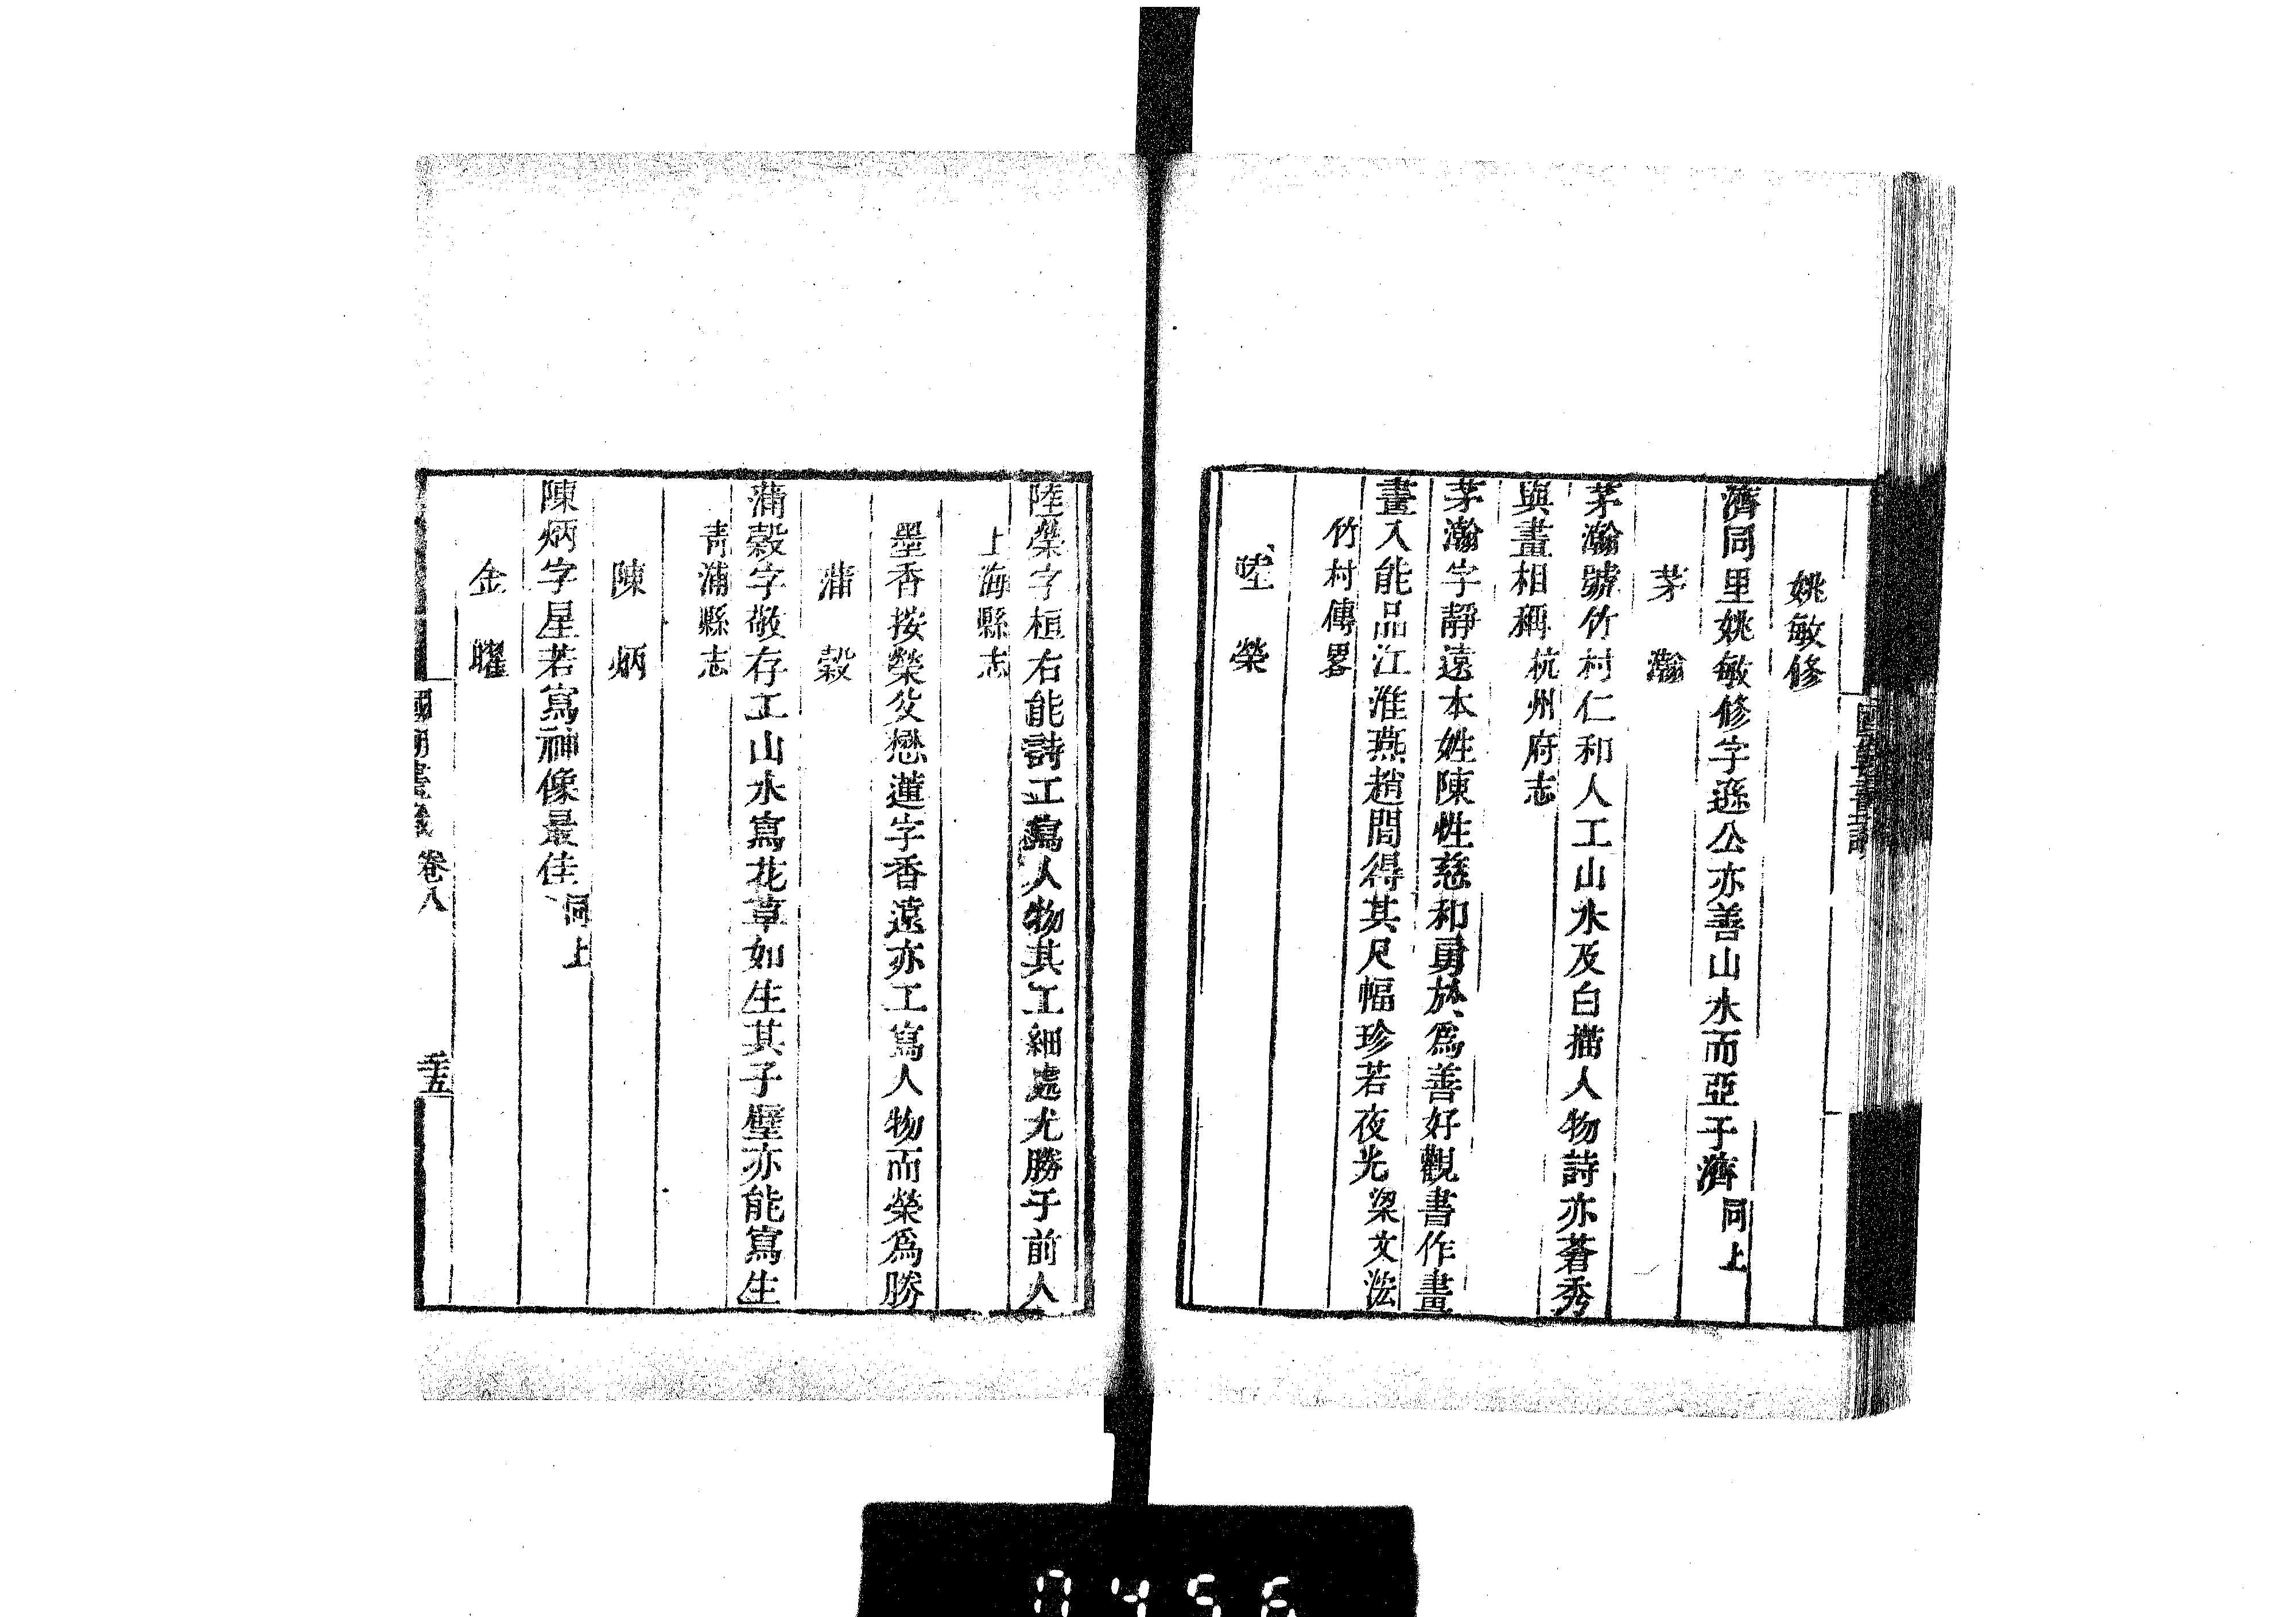 姚敏修
濟同里姚敏修字遜公亦善山水而亞于濟同上
茅瀚
茅瀚號竹村仁和人工山水及白描人物詩亦蒼秀
與畫相稱杭州府志
茅瀚字靜遠本姓陳性慈和勇於爲善好觀書作畫
畫入能品江淮燕趙間得其尺幅珍若夜光梁文泓
竹村傳畧
陸榮
陸榮字桓右能詩工寫人物其工細處尤勝于前人
上海縣志
墨香按榮父懋蓮字香遠亦工寫人物而榮爲勝
蒲穀
蒲穀字敬存工山水寫花草如生其子璧亦能寫生
青浦縣志
陳炳
陳炳字星若寫神像最佳同上
金曜
國朝畫識 卷八
0456